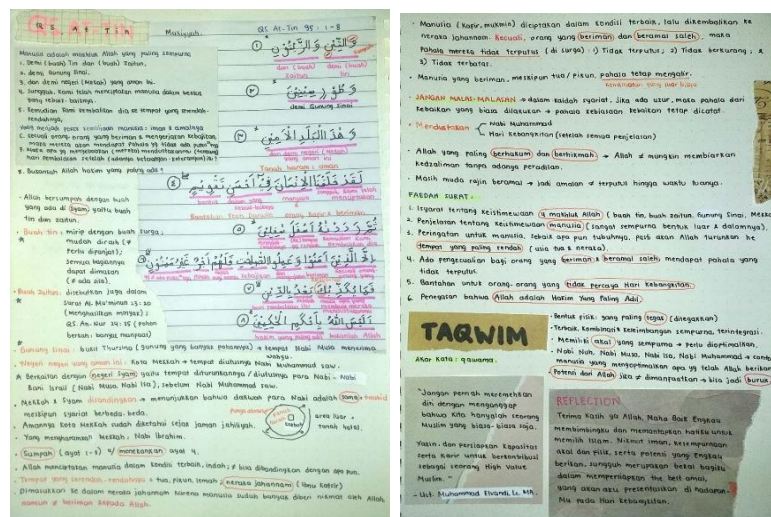 QS. At-Tin
Makiyyah.
QS At-Tin 95 : 1-8
Manusia adalah makhluk Allah yang paling sempurna
1. Demi (buah) Tin dan (buah) Zaitun,
2. demi Gunung Sinai,
3. dan demi negeri (Mekah) yang aman ini.
4. Sungguh, Kami telah menciptakan manusia dalam bentuk
yang sebaik-baiknya.
5. Kemudian Kami kembalikan dia ke tempat yang serendah-
rendahnya,
6. kecuali orang-orang yang beriman & mengerjakan kebajikan
maka mereka akan mendapat pahala yg tidak ada putus²nya
8. Bukankah Allah hakim yang paling adil?
① وَالتِّيْنِ وَالزَّيْتُوْنِ
dan (buah) Zaitun
demi (buah) Tin
② وَطُوْرِ سِيْنِيْنَ
demi Gunung Sinai
③ وَهٰذَا الْبَلَدِ الْاَمِيْنِ
dan demi negeri (Mekah)
yang aman ini
Tanah haram : aman
④ لَقَدْ خَلَقْنَا الْاِنْسَانَ فِيْٓ اَحْسَنِ تَقْوِيْمٍ
⑤ ثُمَّ رَدَدْنٰهُ اَسْفَلَ سٰفِلِيْنَ
⑥ اِلَّا الَّذِيْنَ اٰمَنُوْا وَعَمِلُوا الصّٰلِحٰتِ فَلَهُمْ اَجْرٌ غَيْرُ مَمْنُوْنٍ
⑦ فَمَا يُكَذِّبُكَ بَعْدُ بِالدِّيْنِ
⑧ اَلَيْسَ اللّٰهُ بِاَحْكَمِ الْحٰكِمِيْنَ
- Allah bersumpah dengan buah
yang ada di Syam yaitu buah
tin dan zaitun.
- Buah tin : mirip dengan buah surga;
mudah diraih (≠
perlu dipanjat);
semua bagiannya
dapat dimakan
(≠ ada biji).
- Buah Zaitun : disebutkan juga dalam
Surat Al-Mu'minun 23:20
(menghasilkan minyak);
QS. An-Nur 24:35 (pohon
berkah: banyak manfaat)
- Gunung Sinai : bukit Thursina (gunung yang banyak pohonnya) → tempat Nabi Musa menerima
wahyu.
- Negeri negeri yang aman ini : Kota Mekkah → tempat diutusnya Nabi Muhammad saw.
* Berkaitan dengan negeri Syam yaitu tempat diturunkannya / diutusnya para Nabi - Nabi
Bani Israil (Nabi Musa, Nabi Isa), sebelum Nabi Muhammad saw.
- Mekkah & Syam disandingkan → menunjukkan bahwa dakwah para Nabi adalah sama
meskipun syariat berbeda-beda.
- Amannya Kota Mekkah sudah diketahui sejak zaman jahiliyah.
- Yang mengharamkan Mekkah : Nabi Ibrahim.
area luar =
tanah halal.
- Sumpah (ayat 1-3) u/ menekankan ayat 4.
- Allah menciptakan manusia dalam kondisi terbaik, indah; ≠ bisa dibandingkan dengan apa pun.
- Tempat yang serendah-rendahnya = tua, pikun, lemah ; neraka jahannam (Ibnu Katsir)
- Dimasukkan ke dalam neraka jahannam karena manusia sudah banyak diberi nikmat oleh Allah,
namun ≠ beriman kepada Allah.
- Manusia (kafir, mukmin) diciptakan dalam kondisi terbaik, lalu dikembalikan ke
neraka jahannam. Kecuali, orang yang beriman dan beramal saleh, maka
Pahala mereka tidak terputus (di surga) : 1) Tidak terputus; 2) Tidak berkurang; &
3) Tidak terbatas.
- Manusia yang beriman, meskipun tua/pikun, pahala tetap mengalir.
- JANGAN MALAS-MALASAN → dalam kaidah syariat, jika ada uzur, maka pahala dari
kebaikan yang biasa dilakukan → pahala kebiasaan kebaikan tetap dicatat.
- Mendustakan
Nabi Muhammad
Hari Kebangkitan (setelah semua penjelasan)
- Allah yang paling berhukum dan berhikmah → Allah ≠ mungkin membiarkan
kedzaliman tanpa adanya peradilan.
- Masih muda rajin beramal → jadi amalan ≠ terputus hingga waktu tuanya.
FAEDAH SURAT :
1. Isyarat tentang keistimewaan 4 makhluk Allah (buah tin, buah zaitun, Gunung Sinai, Mekkah
2. Penjelasan tentang keistimewaan manusia (sangat sempurna bentuk luar & dalamnya).
3. Peringatan untuk manusia, sebaik apa pun tubuhnya, pasti akan Allah turunkan ke
tempat yang paling rendah (usia tua & neraka).
4. Ada pengecualian bagi orang yang beriman & beramal saleh mendapat pahala yang
tidak terputus.
5. Bantahan untuk orang-orang yang tidak percaya Hari Kebangkitan.
6. Penegasan bahwa Allah adalah Hakim Yang Paling Adil.
TAQWIM
Akar Kata : qawama.
- Bentuk fisik : yang paling tegas (ditegaskan)
- Terbaik. Kombinatif & keseimbangan sempurna, terintegrasi.
- Memiliki akal yang sempurna → perlu dioptimalkan.
- Nabi Nuh, Nabi Musa, Nabi Isa, Nabi Muhammad →
manusia yang mengoptimalkan apa yg telah Allah berikan
- Potensi dari Allah jika ≠ dimanfaatkan → bisa jadi buruk
"Jangan pernah meremehkan
diri dengan menganggap
bahwa kita hanyalah seorang
Muslim yang biasa-biasa saja.
Yakin, dan persiapkan kapasitas
serta karir untuk berkontribusi
sebagai seorang High Value
Muslim."
- Ust. Muhammad Elvandi, Lc. MA.
REFLECTION
Terima kasih ya Allah, Maha Baik Engkau
membimbingku dan memantapkan hatiku untuk
memilih Islam. Nikmat iman, kesempurnaan
akal dan fisik, serta potensi yang Engkau
berikan, sungguh merupakan bekal bagiku
dalam mempersiapkan the best amal,
yang akan aku presentasikan di hadapan-
Mu pada Hari Kebangkitan.